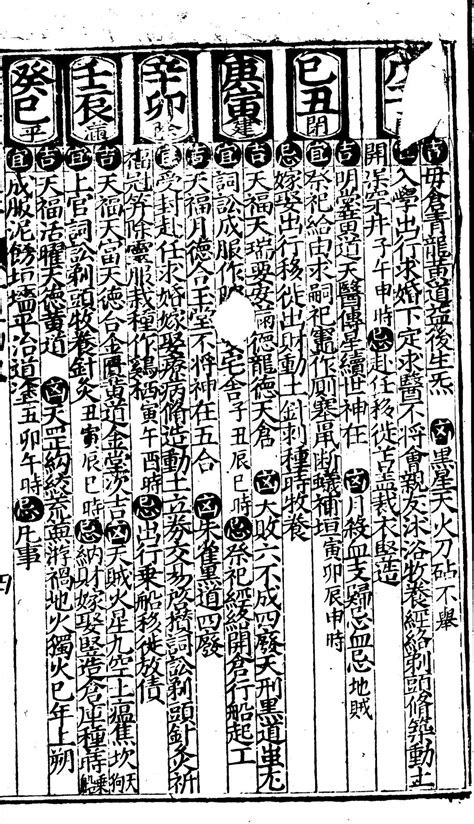 戊子
吉 母倉青龍黃道益後生炁 凶 黑星天火刀砧不舉
入學出行求婚下定求醫不將會親友沐浴牧養經絡剃頭脩築動土
開渠穿井子午申時 忌 赴任移徙苫盖裁衣豎造
己丑 閉
吉 明堂黃道天醫傳星續世神在 凶 月殺血支歸忌血忌地賊
宜 祭祀給由求嗣祀竈作厠塞鼠斷蟻補垣寅卯辰申時
忌 嫁娶出行移徙出財動土針刺種蒔牧養
庚寅 建
吉 天福天瑞要安滿德龍德天倉 凶 大敗六不成四廢天刑黑道
宜 詞訟成服作 宅舍子丑辰巳時 忌 祭祀經絡開倉行船起工
辛卯 除
天福月德合玉堂不將神在五合 凶 朱雀黑道四廢
受封赴任求婚嫁娶療病脩造動土立券交易啓攢詞訟剃頭針灸祈
福冠笄除靈服栽種作雞栖寅午酉時 忌 出行乘船移徙放債
壬辰 滿
吉 天福天富天德合金匱黃道金堂次吉 凶 天賊火星九空土瘟焦坎天狗
宜 上官詞訟剃頭牧養針灸丑寅辰巳時 忌 納財嫁娶豎造倉庫種蒔乘船
癸巳 平
吉 天福活曜天德黃道 凶 天罡納絞荒蕪游禍地火獨火巳年上朔
宜 成服泥餙垣墻平治道塗丑卯午時 忌 凡事